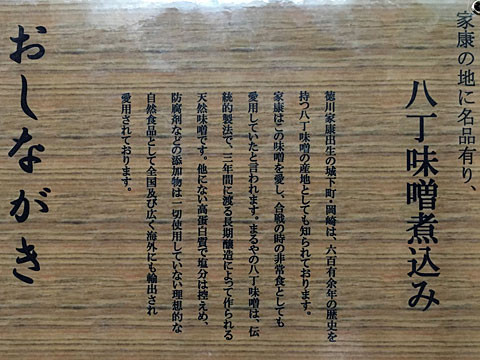 家康の地に名品有り、
八丁味噌煮込み
徳川家康出生の城下町・岡崎は、六百有余年の歴史を
持つ八丁味噌の産地としても知られております。
家康はこの味噌を愛し、合戦の時の非常食としても
愛用していたと言われます。まるやの八丁味噌は、伝
統的製法で、三年間に渡る長期醸造によって作られる
天然味噌です。他にない高蛋白質で塩分は控えめ、
防腐剤などの添加物は一切使用していない理想的な
自然食品として全国及び広く海外にも輸出され
愛用されております。
おしながき